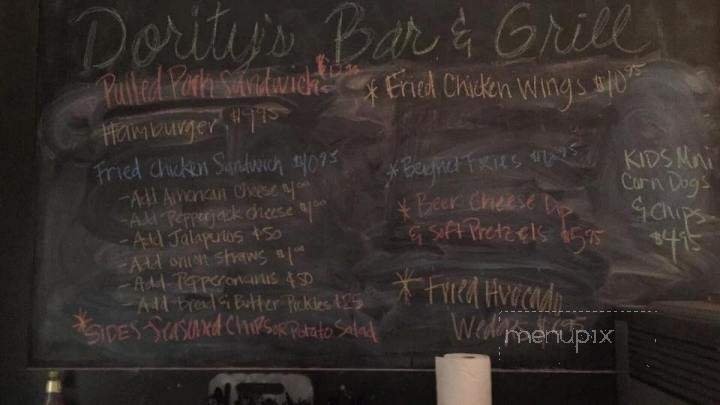 Dority's Bar & Grill
Pulled Pork Sandwich
Hamburger $9.95
Fried Chicken Sandwich $10.95
- Add American Cheese $1.00
- Add Pepperjack cheese $1.00
- Add Jalapenos $.50
- Add onion straws $1.00
- Add Pepperoncinis $.50
- Add bread & Butter Pickles $.25
*SIDES-Seasoned Chips or Potato Salad
* Fried Chicken Wings $10.95
* Beignet Fries
* Beer Cheese Dip
& Soft Pretzels $5.95
* Fried Avocado
KIDS Mini
Corn Dogs
& Chips
$4.95
menupix